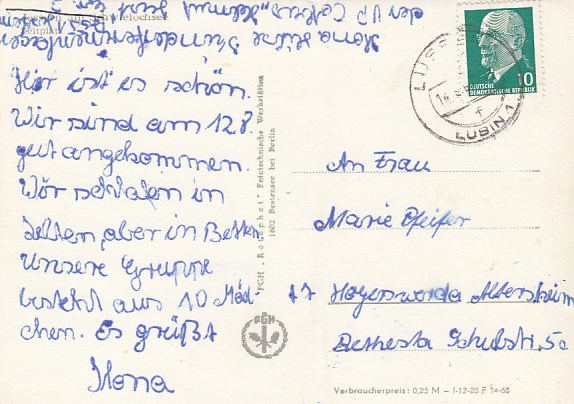 Hier ist es schön.
Wir sind am 12.8.
gut angekommen.
Wir schlafen in
Zelten, aber in Betten
Unsere Gruppe
besteht aus 10 Mäd-
chen. Es grüßt
Ilona
PGH „Rotophot" Fototechnische Werkstätten
1602 Bestensee bei Berlin
PGH
10
DEUTSCHE
DEMOKRATISCHE REPUBLIK
LÜBBEN
LUBIN 1
An Frau
Marie Pfeifer
77 Hoyerswerda Altersheim
Bethesta Schulstr. 5c
Verbraucherpreis: 0,25 M – I-12-20 F 14-68